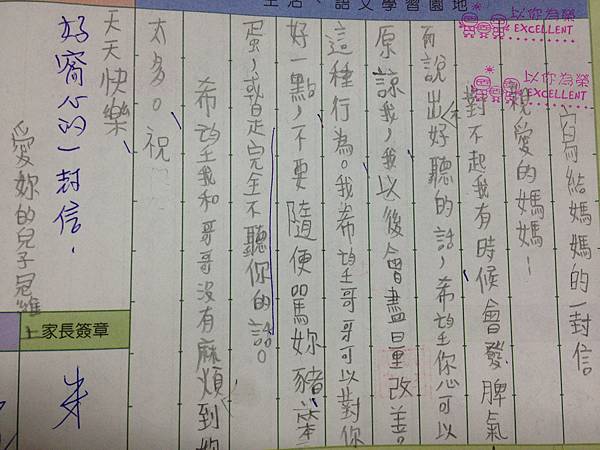 生活、語文學習園地
以你為榮
EXCELLENT
以你為榮
EXCELLENT
寫給媽媽的一封信
親愛的媽媽：
對不起我有時候會發脾氣
而說出不好聽的話，希望你心可以
原諒我，我以後會盡量改善。
這種行為。我希望哥哥可以對你
好一點，不要隨便罵妳豬、笨
蛋，或是完全不聽你的話。
希望我和哥哥沒有麻煩到妳
太多。祝
天天快樂
好窩心的一封信.
愛妳的兒子冠維上
家長簽章